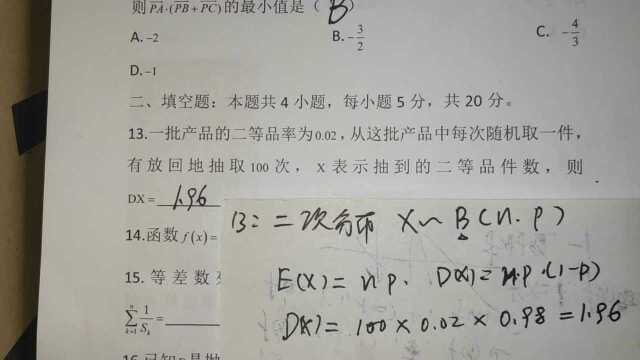 则PA·(PB+PC)的最小值是（ B ）
A. -2 B. -3/2 C. -4/3
D. -1
二、填空题：本题共 4 小题，每小题 5 分，共 20 分。
13.一批产品的二等品率为0.02，从这批产品中每次随机取一件，
有放回地抽取 100 次，X 表示抽到的二等品件数，则
DX = 1.96
13: 二次分布 X~B(n.p)
14.函数 f(x)=
E(X)= np. D(X)= n.p.(1-p)
15. 等差数
D(X)= 100×0.02×0.98=1.96
∑ k=1 n 1/Sk =
16.已知